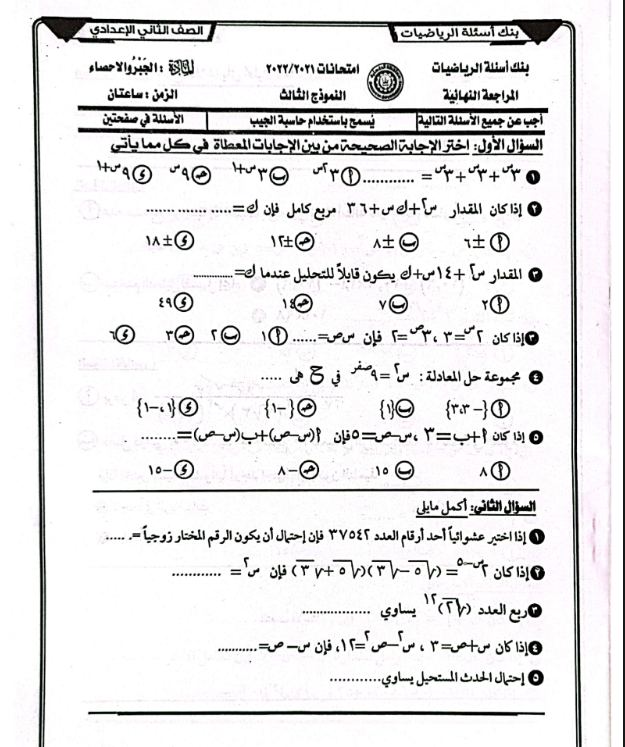 بنك أسئلة الرياضيات
الصف الثاني الإعدادي
بنك أسئلة الرياضيات امتحانات ٢٠٢٢/٢٠٢١ المادة : الجَبْرُ والاحصاء
المراجعة النهائية النموذج الثالث الزمن : ساعتان
أجب عن جميع الأسئلة التالية يُسمح باستخدام حاسبة الجيب الأسئلة في صفحتين
السؤال الأول: اختر الإجابة الصحيحة من بين الإجابات المعطاة في كل مما يأتي
١ ٣س + ٣س + ٣س = ............ أ ٣ ٢س ب ٣ س+١ جـ ٩ س د ٩ س+١
٢ إذا كان المقدار س٢ + ك س + ٣٦ مربع كامل فإن ك = ..................
أ ± ٦ ب ± ٨ جـ ± ١٢ د ± ١٨
٣ المقدار س٢ + ١٤س + ك يكون قابلاً للتحليل عندما ك = ............
أ ٢ ب ٧ جـ ١٤ د ٤٩
٣ إذا كان ٢س = ٣ ، ٣ص = ٢ فإن س ص = ...... أ ١ ب ٢ جـ ٣ د ٦
٤ مجموعة حل المعادلة : س٢ = ٩صفر في ح هى .....
أ {-٣،٣} ب {١} جـ {-١} د {١، -١}
٥ إذا كان أ+ب = ٣ ، س-ص = ٥ فإن أ(س-ص)+ب(س-ص) = ........
أ ٨ ب ١٥ جـ -٨ د -١٥
السؤال الثاني: أكمل مايلى
١ إذا اختير عشوائياً أحد أرقام العدد ٣٧٥٤٢ فإن إحتمال أن يكون الرقم المختار زوجياً = .....
٢ إذا كان ٢س-٥ = (√٥ - √٣)(√٥ + √٣) فإن س٢ = ............
٣ ربع العدد (√٢)١٢ يساوي ..................
٤ إذا كان س+ص = ٣ ، س٢ - ص٢ = ١٢، فإن س - ص = ...........
٥ إحتمال الحدث المستحيل يساوي ............